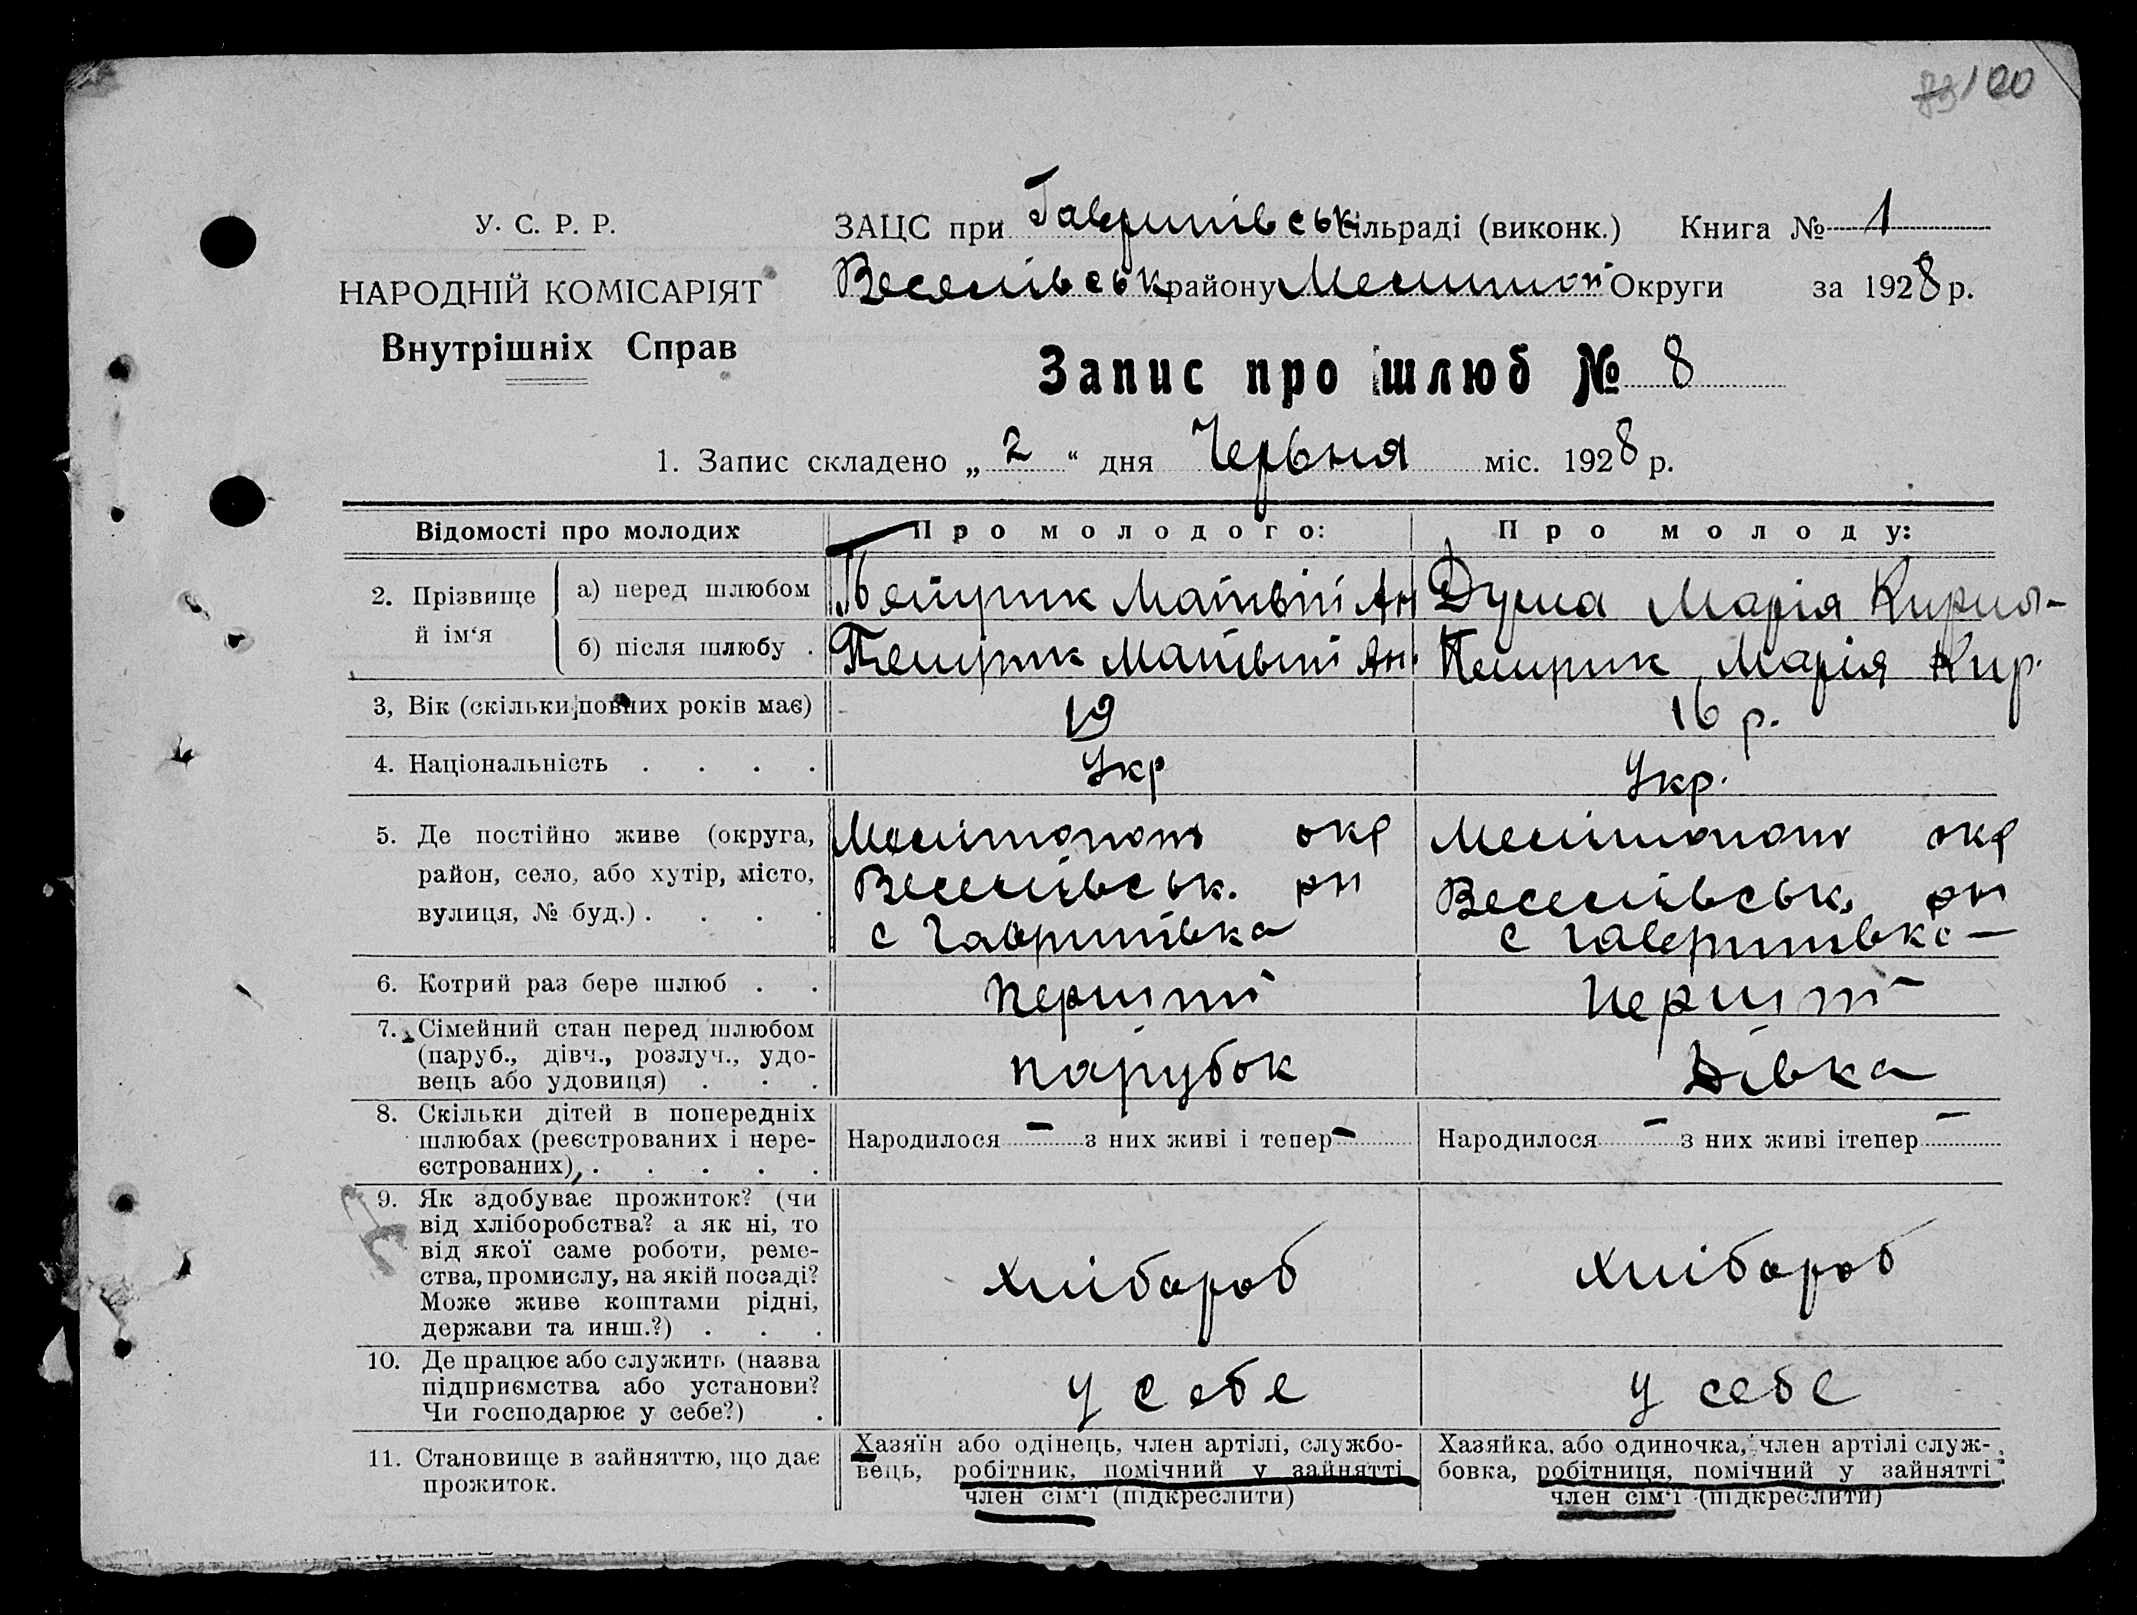 89 100
У. С. Р. Р.
НАРОДНІЙ КОМІСАРІЯТ
Внутрішніх Справ
ЗАЦС при Гаврилівськ сільраді (виконк.) Книга № 1
Веселівськ району Округи за 1928 р.
Запис про шлюб № 8
1. Запис складено „ 2 “ дня Червня міс. 1928 р.
Відомості про молодих Про молодого: Про молоду:
2. Прізвище й ім‘я
а) перед шлюбом Матвій Ан Дума Марія Кирил-
б) після шлюбу . Матвій Ан. Марія Кир.
3, Вік (скільки повних років має) 19 16 р.
4. Національність . . . . Укр Укр.
5. Де постійно живе (округа,
район, село, або хутір, місто,
вулиця, № буд.) . . . .
Мелітопол окр
Веселівськ. рн
с Гаврилівка
Мелітопол окр
Веселівськ. рн
с Гаврилівка
6. Котрий раз бере шлюб . . Перший Перший
7. Сімейний стан перед шлюбом
(паруб., дівч., розлуч., удо-
вець або удовиця) . . .
парубок Дівка
8. Скільки дітей в попередніх
шлюбах (реєстрованих і нере-
єстрованих) . . . . .
Народилося – з них живі і тепер –
Народилося – з них живі ітепер –
9. Як здобуває прожиток? (чи
від хліборобства? а як ні, то
від якої саме роботи, реме-
ства, промислу, на якій посаді?
Може живе коштами рідні,
держави та инш.?) . . .
хлібороб хлібороб
10. Де працює або служить (назва
підприємства або установи?
Чи господарює у себе?) .
у себе у себе
11. Становище в зайняттю, що дає
прожиток.
Хазяїн або одінець, член артілі, службо-
вець, робітник, помічний у зайнятті
член сім‘ї (підкреслити)
Хазяйка, або одиночка, член артілі служ-
бовка, робітниця, помічний у зайнятті
член сім‘ї (підкреслити)